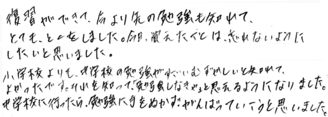 復習ができて、今より先の勉強も知れて、
とても、とくをしました。今日、覚えたことは、忘れないように
したいと思いました。
小学校よりも、中学校の勉強がすごいむずかしいと知れて、
よかったです。知って、勉強しなきゃと思えるようになりました。
中学校に行ったら、勉強に手をぬかずがんばっていこうと思いました。